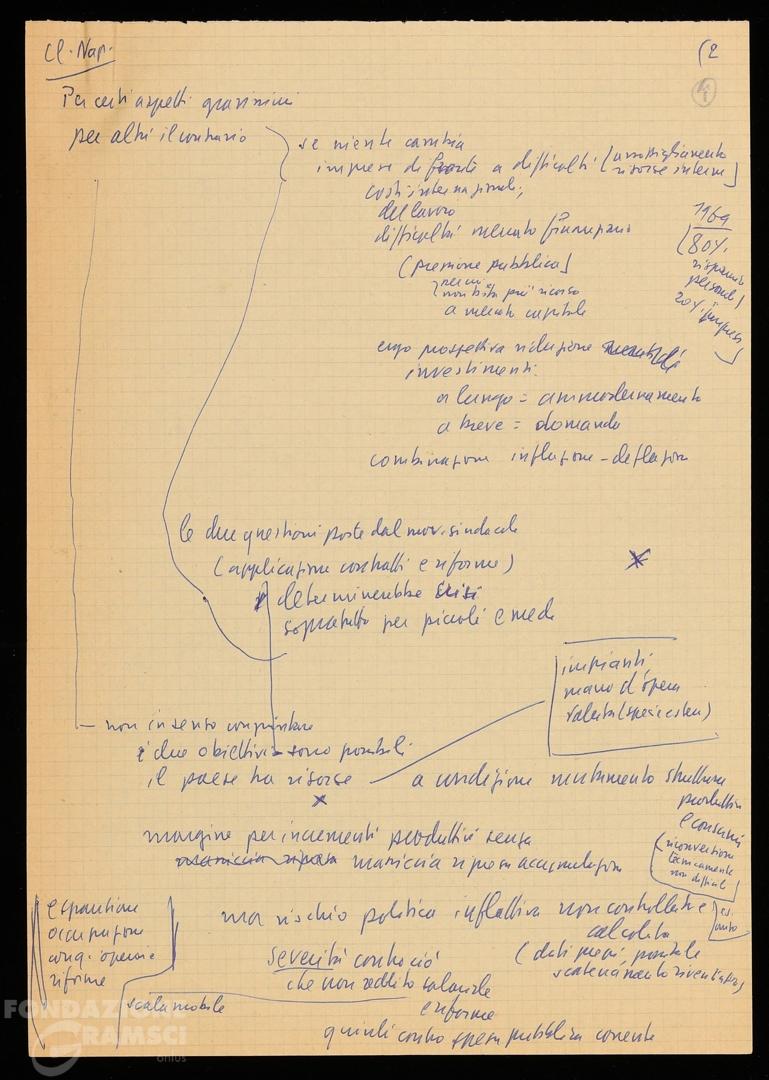 Cl. Nap.
(2
4
Per certi aspetti gravissimi
per altri il contrario
se niente cambia
imprese di fronte a difficoltà (assottigliamento
risorse interne)
costi internazionali,
del lavoro
difficoltà mercato finanziario
(pressione pubblica)
non più ricorso
a mercato capitale
1969
(80%
risparmio
personal
20% imprese
)
ergo prospettiva riduzione
investimenti:
a lungo = ammodernamento
a breve = domanda
combinazione inflazione - deflazione
le due questioni poste dal mov. sindacale
(applicazione contratti e riforme)
determinerebbe crisi
sopratutto per piccoli e medi
impianti
mano d'opera
valuta (specie estera)
non insento
i due obiettivi sono possibili
il paese ha risorse
a condizione mutamento struttura
produttiva
e consumi
(riconversione
tecnicamente
non difficile)
margine per incrementi produttivi senza
massiccia ripresa massiccia ripresa accumulazione
espansione
occupazione
conq. operaie
riforme
ma rischio politica inflattiva non controllata e
calcolata
es.
auto
(dati prezzi, possibile
scatenamento rivendicativo)
severità contro ciò
che non reddito salariale
e riforme
scala mobile
quindi contro spesa pubblica corrente
FONDAZIONE
GRAMSCI
onlus